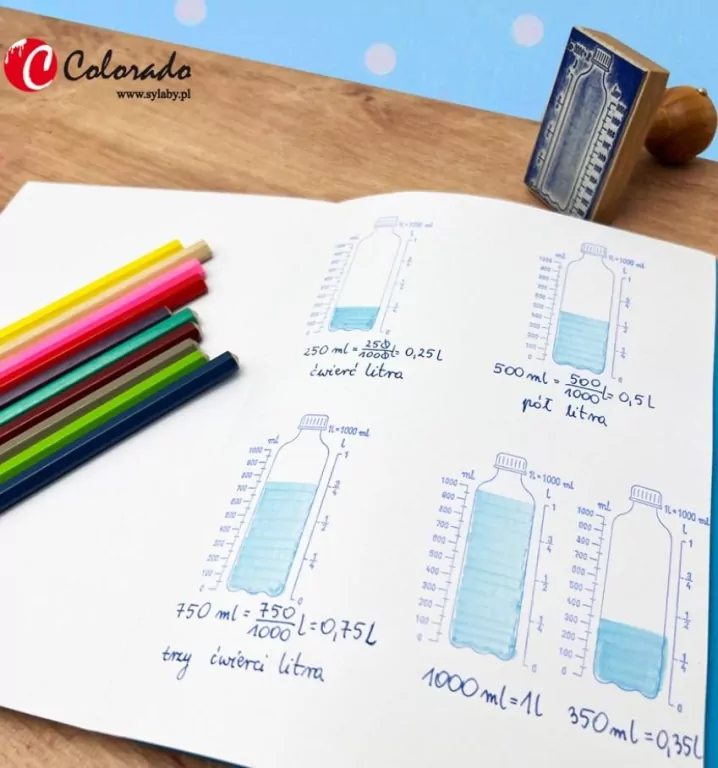 Colorado
www.sylaby.pl
1L=1000 ml
ml
l
1000
900
800
700
600
500
400
300
200
100
0
1
3/4
1/2
1/4
0
250 ml = 250/1000 l = 0,25L
ćwierć litra
1L=1000 ml
ml
l
1000
900
800
700
600
500
400
300
200
100
0
1
3/4
1/2
1/4
0
500 ml = 500/1000 l = 0,5L
pół litra
1L=1000 ml
ml
l
1000
900
800
700
600
500
400
300
200
100
0
1
3/4
1/2
1/4
0
750 ml = 750/1000 l = 0,75L
trzy ćwierci litra
1L=1000 ml
ml
l
1000
900
800
700
600
500
400
300
200
100
0
1
3/4
1/2
1/4
0
1000 ml = 1l
1L=1000 ml
ml
l
1000
900
800
700
600
500
400
300
200
100
0
1
3/4
1/2
1/4
0
350 ml = 0,35l